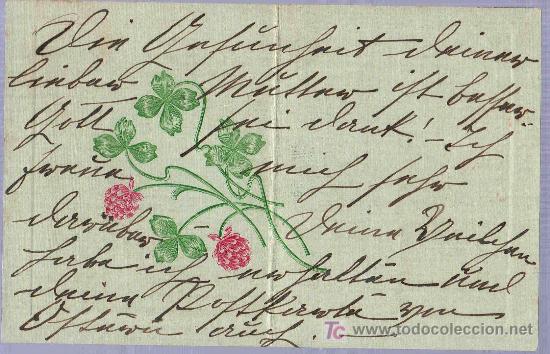 Die Gesundheit deiner
lieben Mutter ist besser
Gott sei dank! – Ich
freue mich sehr
darüber – Deine Veilchen
habe ich erhalten und
deine Postkarte von
auch. –
TC www.todocoleccion.net